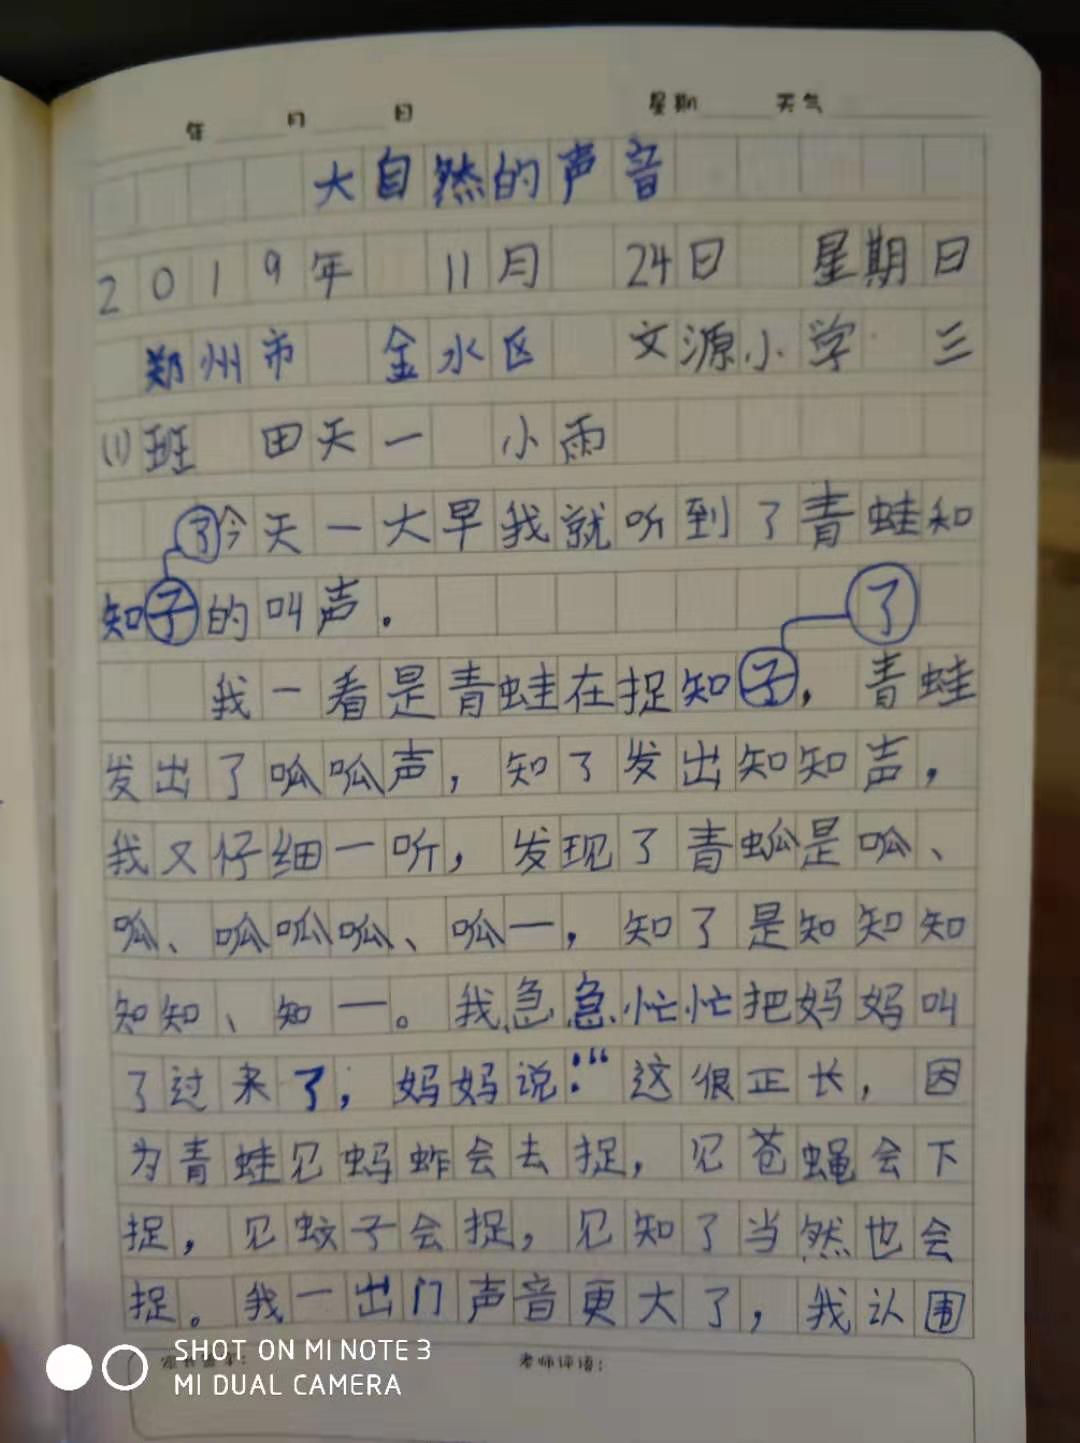 年 月 日 星期 天气
大自然的声音
2019年 11月 24日 星期日
郑州市 金水区 文源小学 三
(1)班 田天一 小雨
了今天一大早我就听到了青蛙和
知子的叫声。
了
我一看是青蛙在捉知子，青蛙
发出了呱呱声，知了发出知知声，
我又仔细一听，发现了青蚃是呱、
呱、呱呱呱、呱一，知了是知知知
知知、知一。我急急忙忙把妈妈叫
了过来了，妈妈说：“这很正长，因
为青蛙见蚂蚱会去捉，见苍蝇会下
捉，见蚊子会捉，见知了当然也会
捉。我一出门声音更大了，我认围
老师评语：
SHOT ON MI NOTE 3
MI DUAL CAMERA